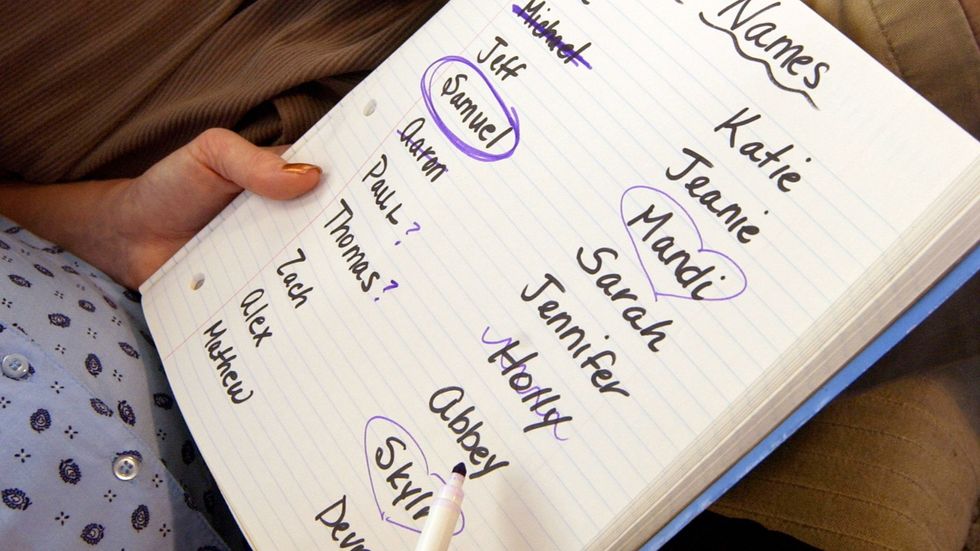 Names
Michael
Jeff
Samuel
Aaron
Paul?
Thomas?
Zach
Alex
Mathew
Katie
Jeanie
Mandi
Sarah
Jennifer
Holly
Abbey